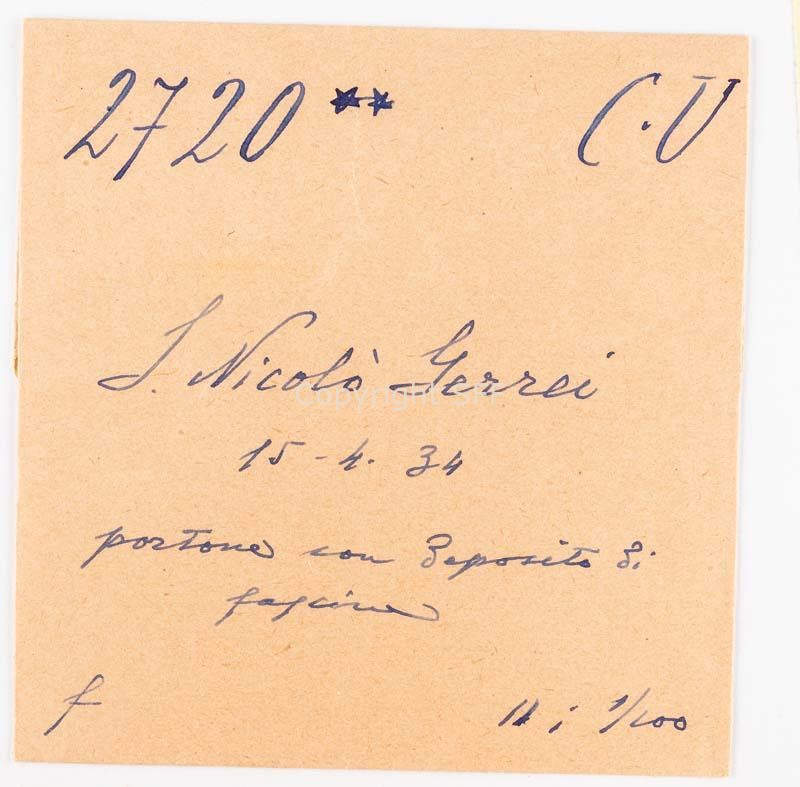 2720 ** C.V
S. Nicolò Gerrei
15-4.34
portone con deposito di
fascine
f
11 i 1/100
Copyright